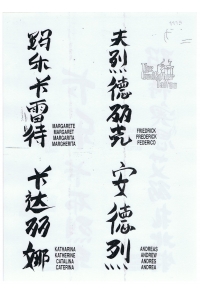 玛尔卡雷特
MARGARETE
MARGARET
MARGARITA
MARGHERITA
夫烈德克
FRIEDRICK
FREDERICK
FEDERICO
卡达丽娜
KATHARINA
KATHERINE
CATALINA
CATERINA
安德烈
ANDREAS
ANDREW
ANDRES
ANDREA